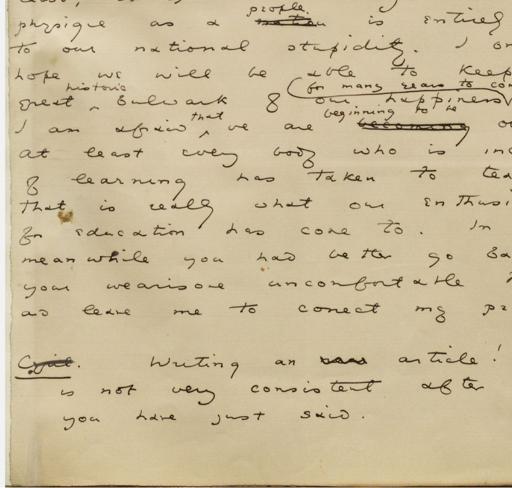 people
physique as a nation is entirely
to our national stupidity. I on
hope we will be able to keep
historic (for many years to com
great ^ bulwark of our happiness
that beginning to be
I am afraid ^ we are becoming ov
at least every body who is inc
of learning has taken to tea
that is really what our enthusi
for education has come to. In
meanwhile you had better go ba
your wearisome uncomfortable
and leave me to correct my pr
Cyril. Writing an article!
is not very consistent after
you have just said.